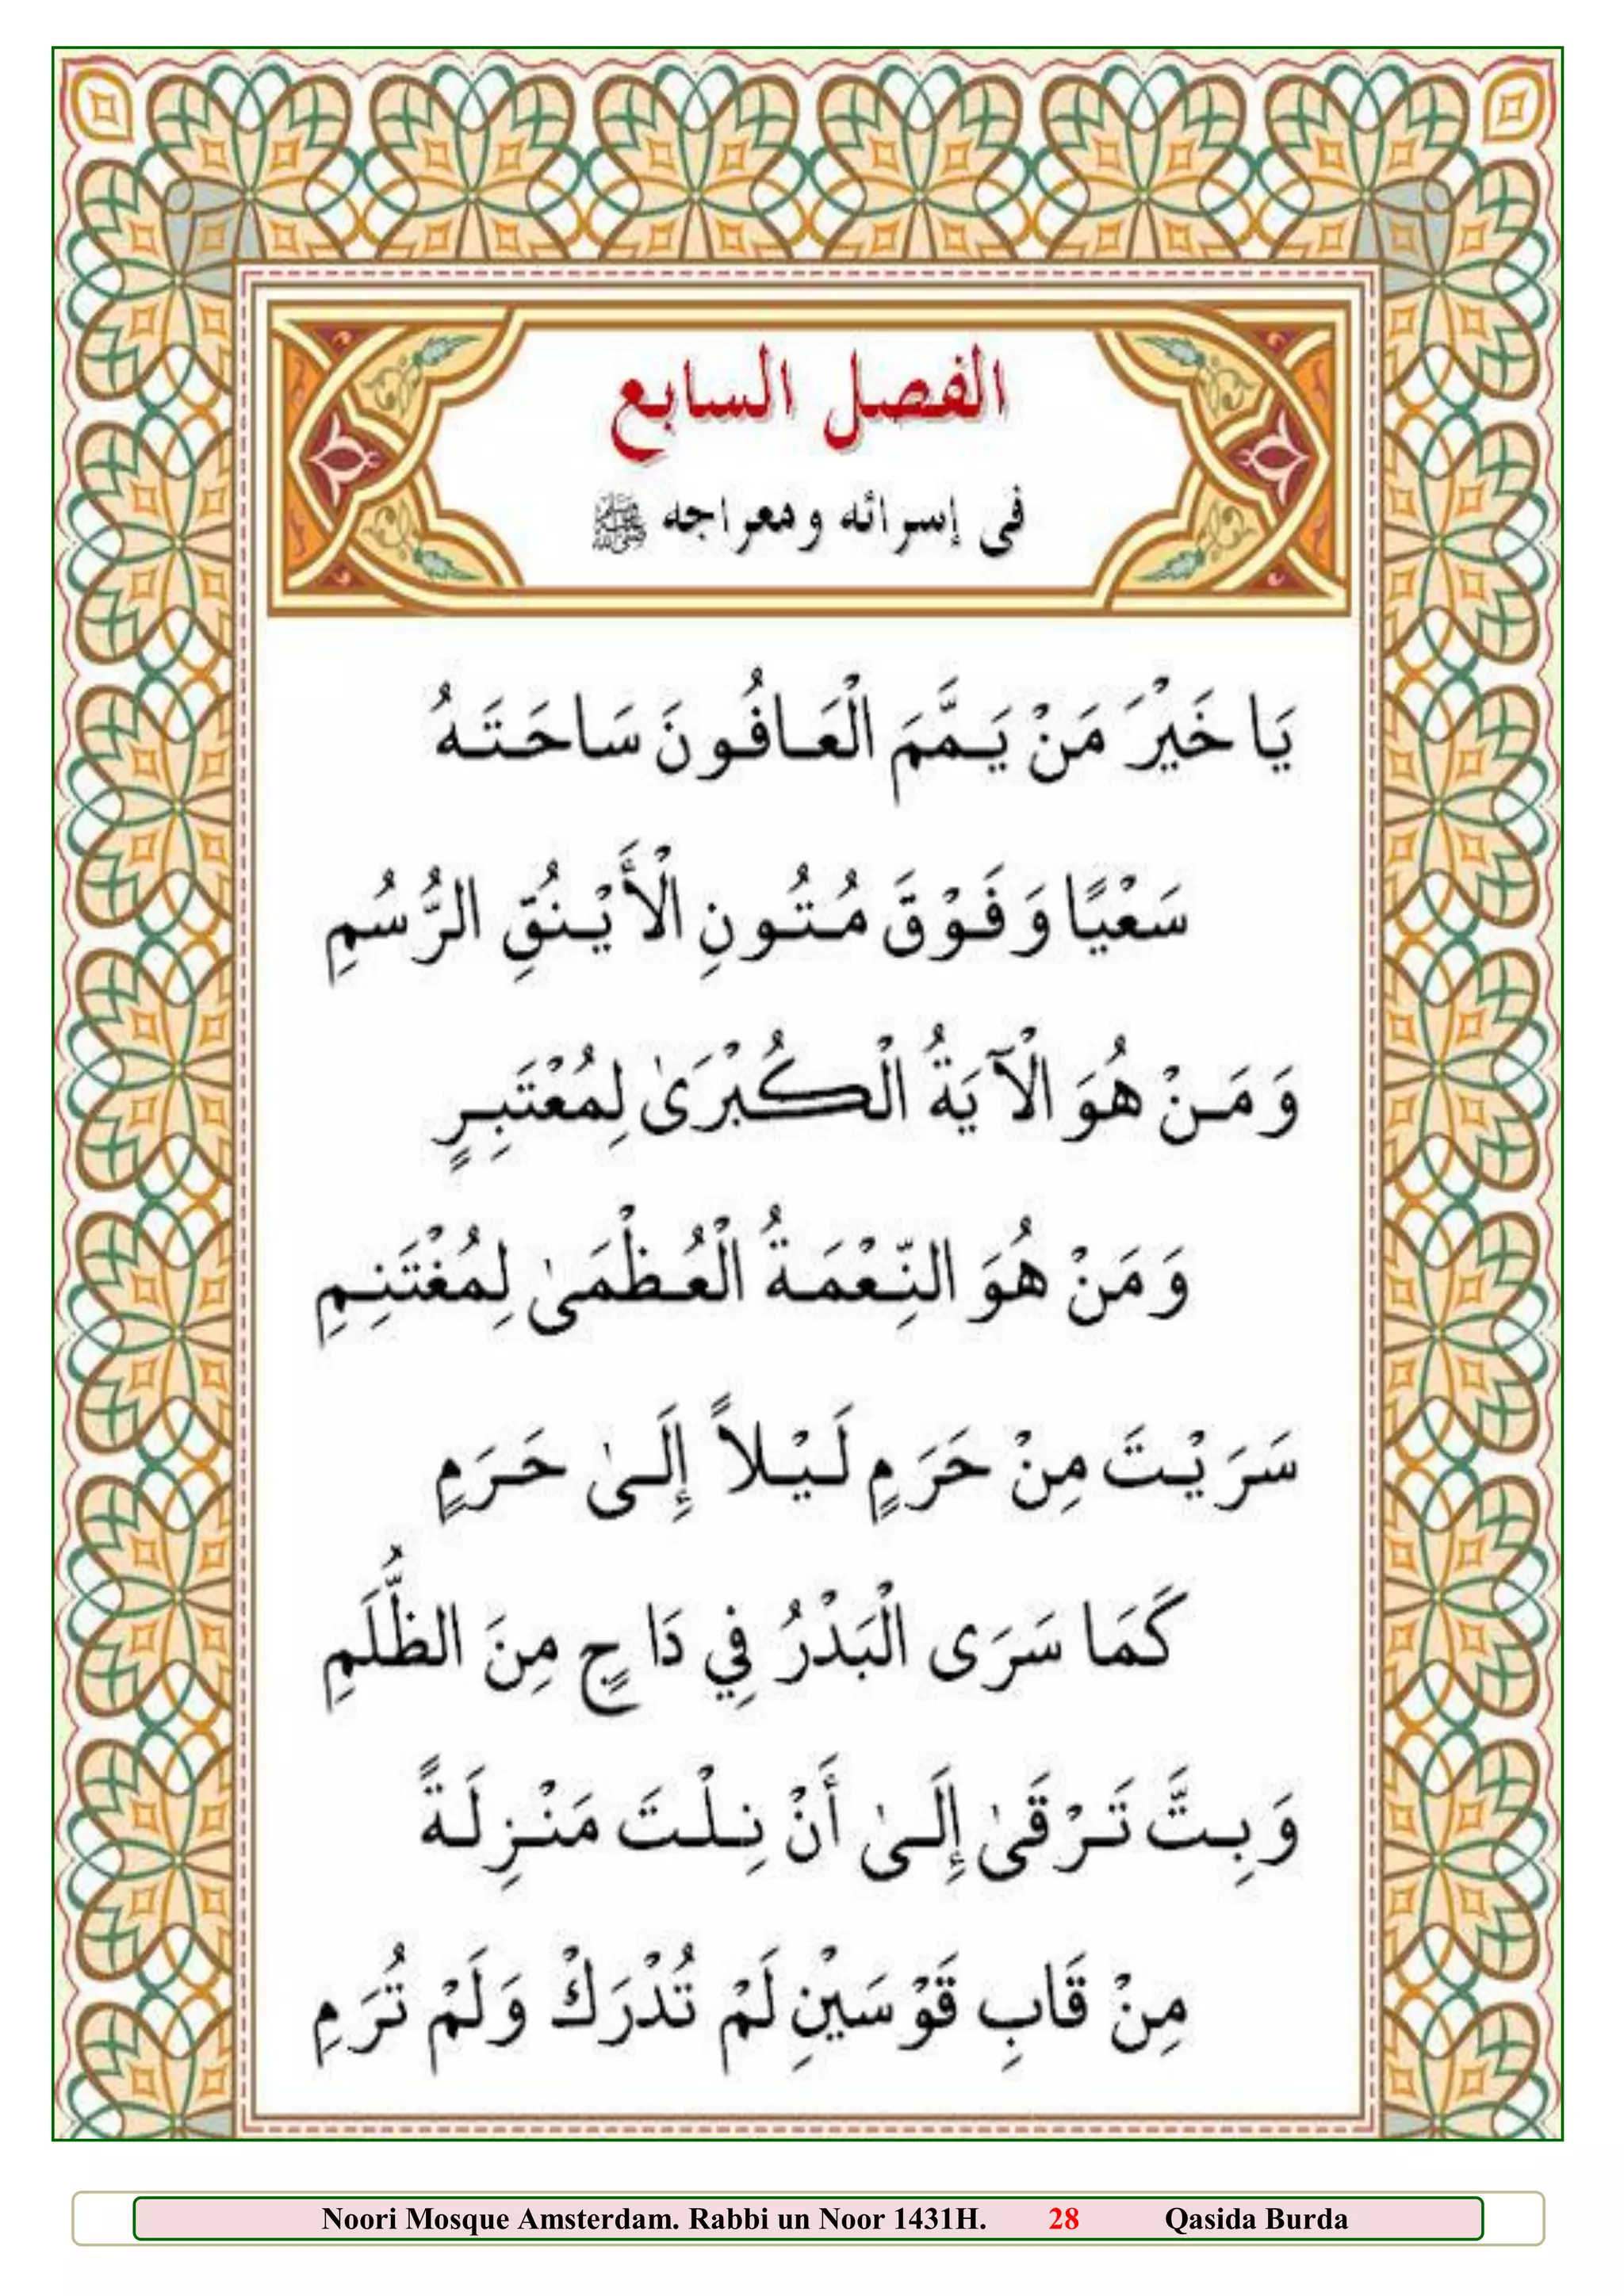 الفصل السابع
فى إسرائه ومعراجه ﷺ
يَا خَيْرَ مَنْ يَمَّمَ الْعَافُونَ سَاحَتَهُ
سَعْيًا وَفَوْقَ مُتُونِ الْأَيْنُقِ الرُّسُمِ
وَمَنْ هُوَ الْآيَةُ الْكُبْرَىٰ لِمُعْتَبِرٍ
وَمَنْ هُوَ النِّعْمَةُ الْعُظْمَىٰ لِمُغْتَنِمِ
سَرَيْتَ مِنْ حَرَمٍ لَيْلاً إِلَىٰ حَرَمٍ
كَمَا سَرَى الْبَدْرُ فِي دَاجٍ مِنَ الظُّلَمِ
وَبِتَّ تَرْقَىٰ إِلَىٰ أَنْ نِلْتَ مَنْزِلَةً
مِنْ قَابِ قَوْسَيْنِ لَمْ تُدْرَكْ وَلَمْ تُرَمِ
Noori Mosque Amsterdam. Rabbi un Noor 1431H. 28 Qasida Burda